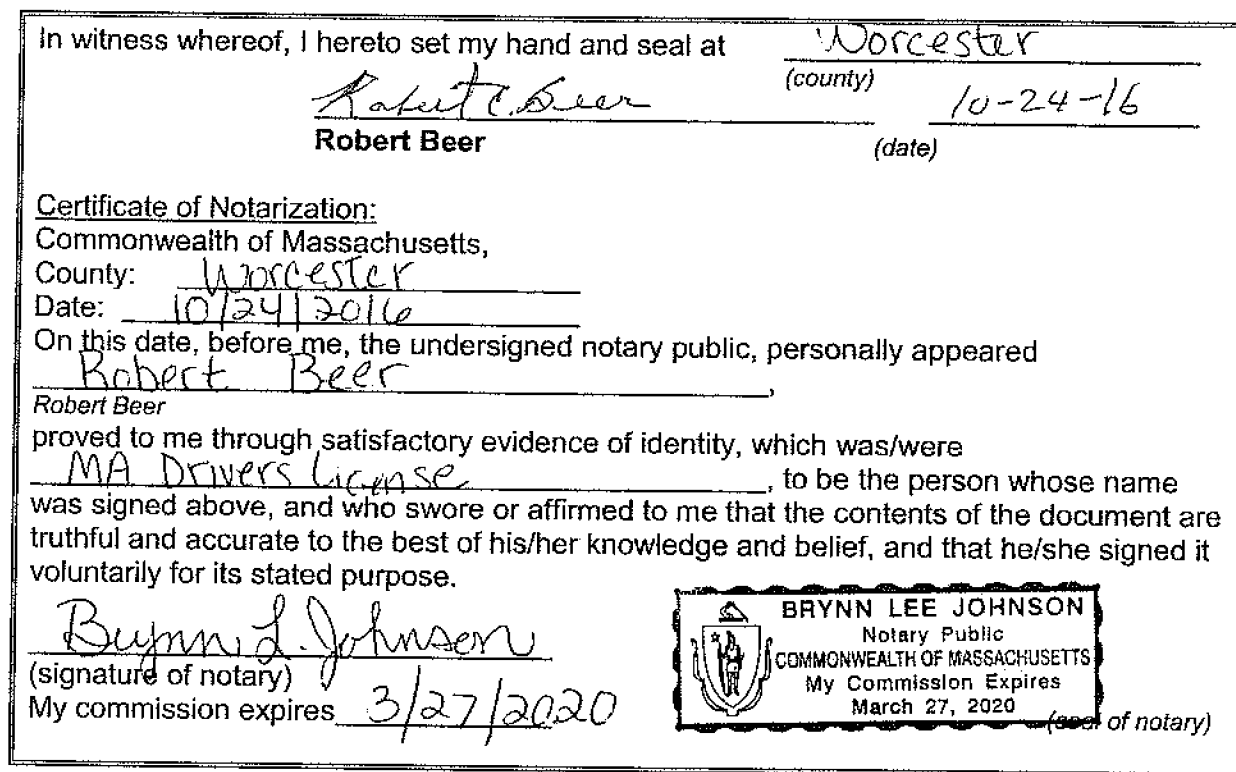 In witness whereof, I hereto set my hand and seal at Worcester
(county)
Robert C. Beer 10-24-16
Robert Beer (date)
Certificate of Notarization:
Commonwealth of Massachusetts,
County: Worcester
Date: 10/24/2016
On this date, before me, the undersigned notary public, personally appeared
Robert Beer,
Robert Beer
proved to me through satisfactory evidence of identity, which was/were
MA Drivers License, to be the person whose name
was signed above, and who swore or affirmed to me that the contents of the document are
truthful and accurate to the best of his/her knowledge and belief, and that he/she signed it
voluntarily for its stated purpose.
Brynn L. Johnson
(signature of notary)
My commission expires 3/27/2020
BRYNN LEE JOHNSON
Notary Public
COMMONWEALTH OF MASSACHUSETTS
My Commission Expires
March 27, 2020
(seal of notary)